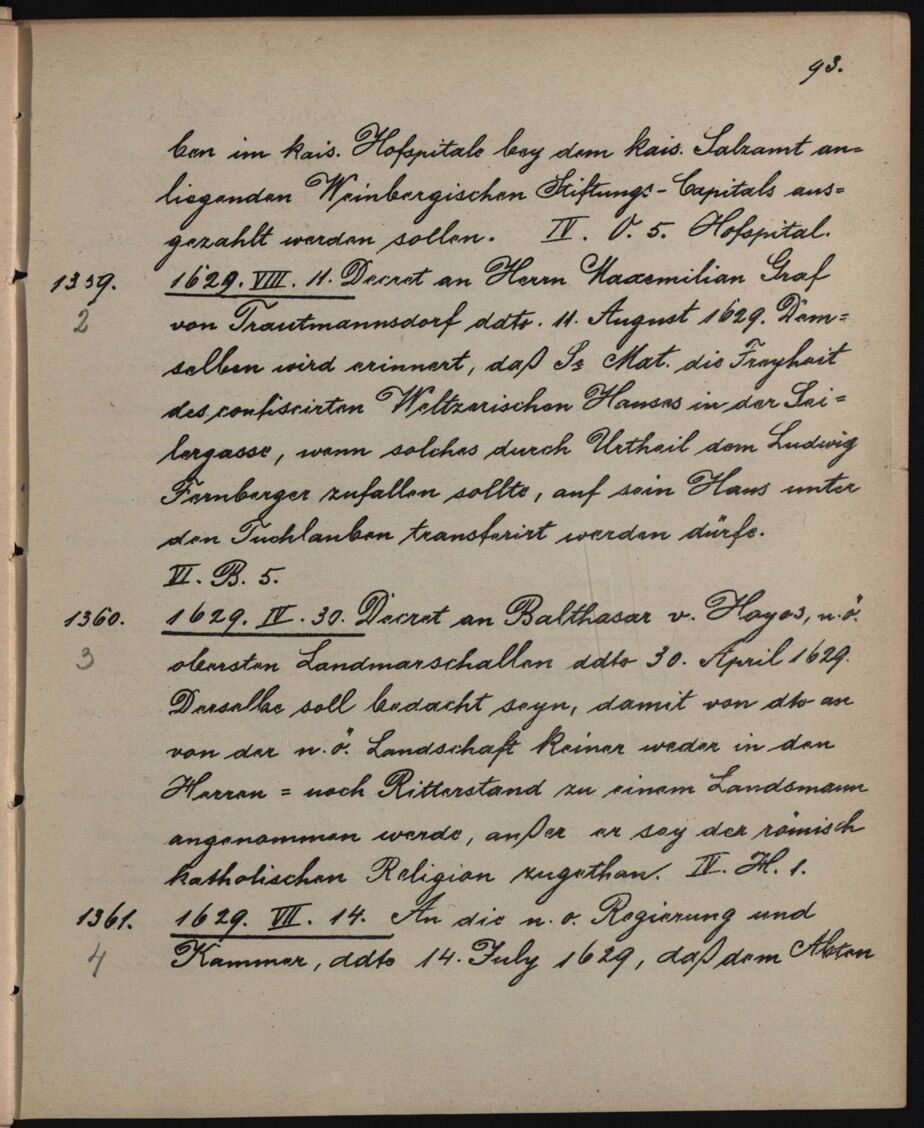 93.
ben im kais. Hofspitale bey dem kais. Salzamt an=
liegenden Weinbergischen Stiftungs-Capitals aus=
gezahlt werden sollen. IV. O. 5. Hofspital.
1359. 1629. VIII. 11. Decret an Herrn Maxemilian Graf
2 von Trautmannsdorf ddto. 11. August 1629. Dem=
selben wird erinnert, daß Se Mat. die Freyheit
des confiscirten Weltzerischen Hauses in der Sei=
lergasse, wenn solches durch Urtheil dem Ludwig
Fernberger zufallen sollte, auf sein Haus unter
den Tuchlauben transferirt werden dürfe.
VI. B. 5.
1360. 1629. IV. 30. Decret an Balthasar v. Hoyos, n.ö.
3 obersten Landmarschallen ddto 30. April 1629.
Derselbe soll bedacht seyn, damit von dto an
von der n.ö. Landschaft keiner weder in den
Herren = noch Ritterstand zu einem Landsmann
angenommen werde, außer er sey der römisch
katholischen Religion zugethan. IV. H. 1.
1361. 1629. VII. 14. An die n.o. Regierung und
4 Kammer, ddto 14. July 1629, daß dem Abten